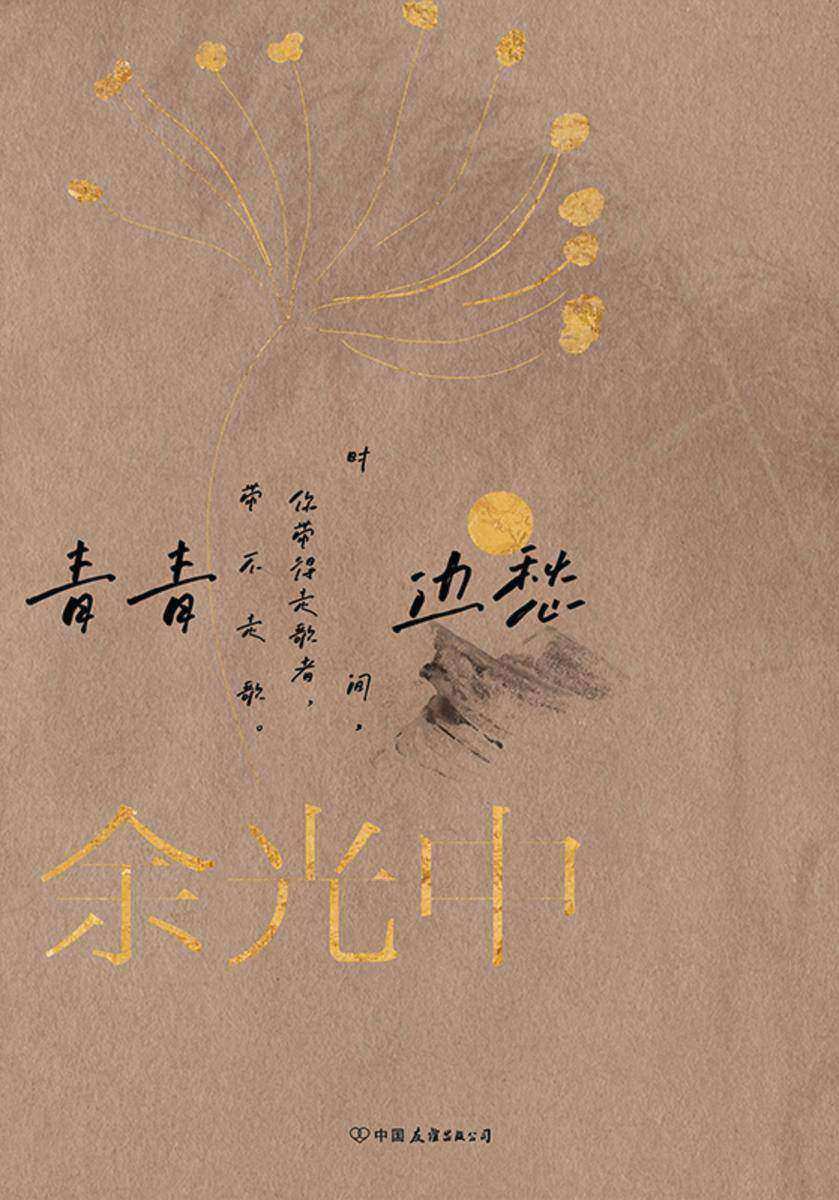 青青边愁
时间，
你带得走歌者，
带不走歌。
余光中
中国友谊出版公司